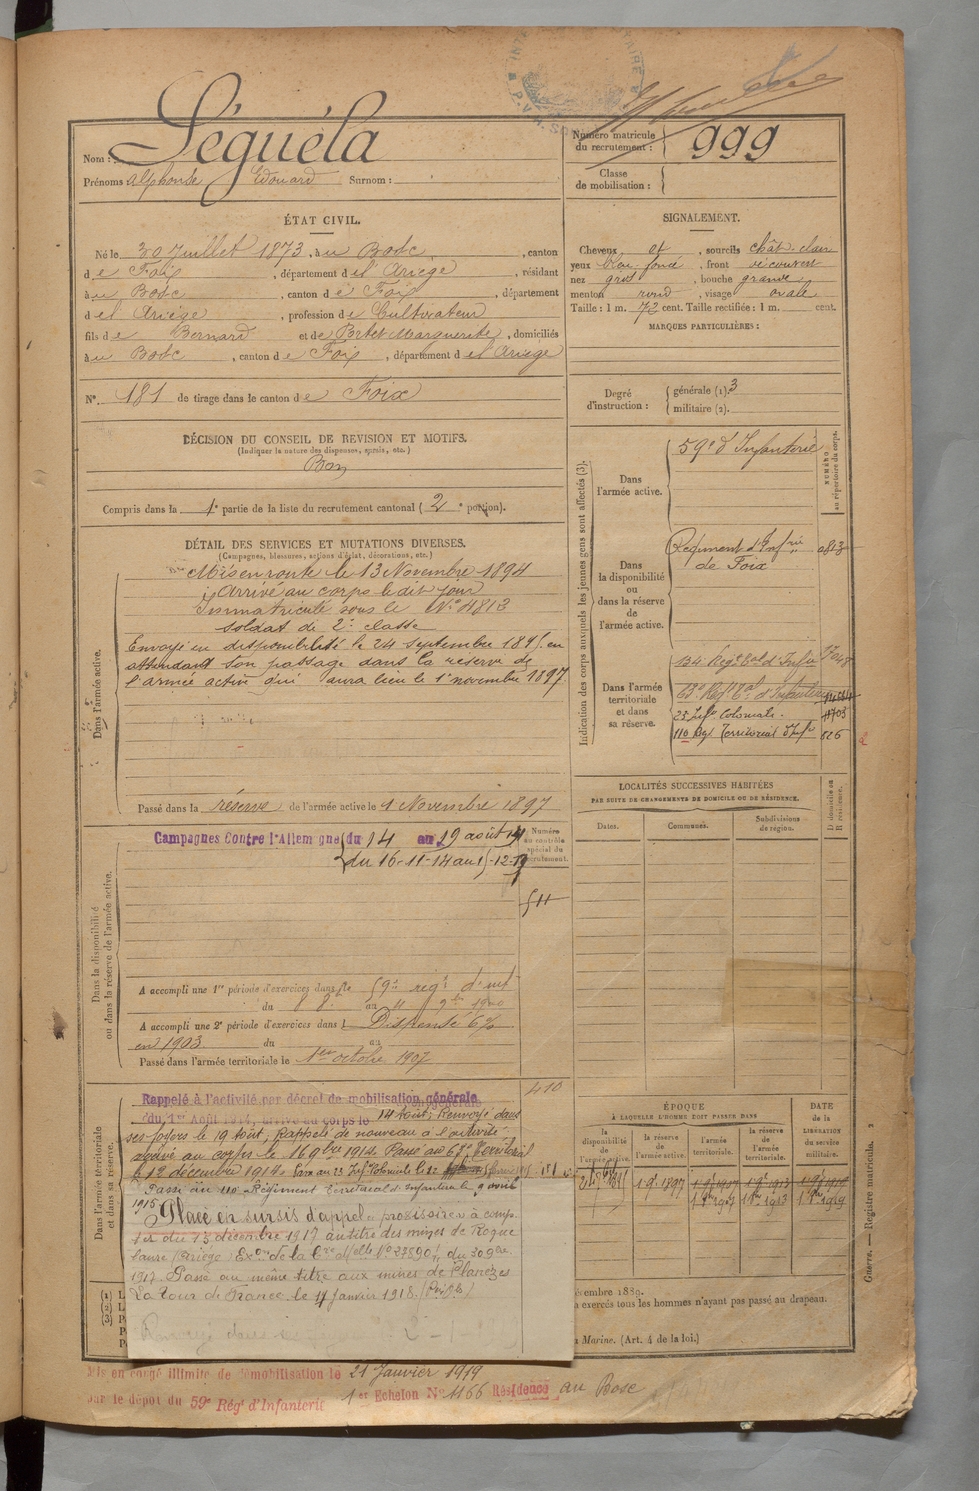 Nom : Séguéla
Prénoms Alphonse Edouard Surnom :
Numéro matricule du recrutement : 999
Classe de mobilisation :
ÉTAT CIVIL.
Né le 30 Juillet 1873, à u Bosc, canton
d e Foix, département d e l'Ariège, résidant
à u Bosc, canton d e Foix, département
d e l'Ariège, profession d e Cultivateur
fils d e Bernard et de Portet Marguerite, domiciliés
à u Bosc, canton d e Foix, département d e l'Ariège
N° 181 de tirage dans le canton d e Foix
SIGNALEMENT.
Cheveux et, sourcils chât. clair
yeux bleu foncé, front découvert
nez gros, bouche grande
menton rond, visage ovale
Taille : 1 m. 72 cent. Taille rectifiée : 1 m. cent.
MARQUES PARTICULIÈRES :
Degré d'instruction : générale (1). 3
militaire (2).
DÉCISION DU CONSEIL DE REVISION ET MOTIFS.
(Indiquer la nature des dispenses, sursis, etc.)
Bon
Compris dans la 1e partie de la liste du recrutement cantonal (2e portion).
DÉTAIL DES SERVICES ET MUTATIONS DIVERSES.
(Campagnes, blessures, actions d'éclat, décorations, etc.)
Dans l'armée active.
Mis en route le 13 Novembre 1894
Arrivé au corps le dit jour
Immatriculé sous le N° 4813
soldat de 2e classe
Envoyé en disponibilité le 24 septembre 1895 en
attendant son passage dans la réserve de
l'armée active qui aura lieu le 1er novembre 1897
Passé dans la réserve de l'armée active le 1 Novembre 1897
Indication des corps auxquels les jeunes gens sont affectés (3).
NUMÉRO au répertoire du corps.
Dans l'armée active.
59e d'Infanterie
Dans la disponibilité ou dans la réserve de l'armée active.
Régiment d'Infrie
de Foix
Dans l'armée territoriale et dans sa réserve.
134 Regt tal d'Infie
23 Infie Coloniale. 11703
110 Rgt Territorial d'Infie 826
LOCALITÉS SUCCESSIVES HABITÉES
PAR SUITE DE CHANGEMENTS DE DOMICILE OU DE RÉSIDENCE.
Dates. Communes. Subdivisions de région. D domicile ou R résidence.
Dans la disponibilité ou dans la réserve de l'armée active.
Campagnes Contre l'Allemagne du 14 au 19 août 14
du 16-11-14 au
Numéro au contrôle spécial du recrutement.
511
A accompli une 1re période d'exercices dans le 59e régt d'inf
du au 1900
A accompli une 2e période d'exercices dans l Dispensé 6%
en 1903 du au
Passé dans l'armée territoriale le 1er octobre 1907
410
Dans l'armée territoriale et dans sa réserve.
Rappelé à l'activité par décret de mobilisation générale
du 1er Août 1914, arrivé au corps le 14 Août, Renvoyé dans
ses foyers le 19 Août, Rappelé de nouveau à l'activité
arrivé au corps le 16 9bre 1914. Passé au 63e Territorial
le 12 décembre 1914. Passé au 23 Infie Coloniale le 12
Passé au 110 Régiment Territorial d'Infanterie le 9 avril
1915
Placé en sursis d'appel provisoire à comp.
ter du 13 décembre 1917 au titre des mines de Roque
laure (Ariège)
1917. Passé au même titre aux mines de
La Tour de France le 4 Janvier 1918.
ÉPOQUE
À LAQUELLE L'HOMME DOIT PASSER DANS
la disponibilité de l'armée active. la réserve de l'armée active. l'armée territoriale. la réserve de l'armée territoriale.
DATE de la LIBÉRATION du service militaire.
embre 1889.
a exercés tous les hommes n'ayant pas passé au drapeau.
Marine. (Art. 4 de la loi.)
Guerre. — Registre matricule.
Mis en congé illimité de démobilisation le 21 Janvier 1919
par le dépôt du 59e Régt d'Infanterie 1er Echelon N° 1166 Résidence au Bosc